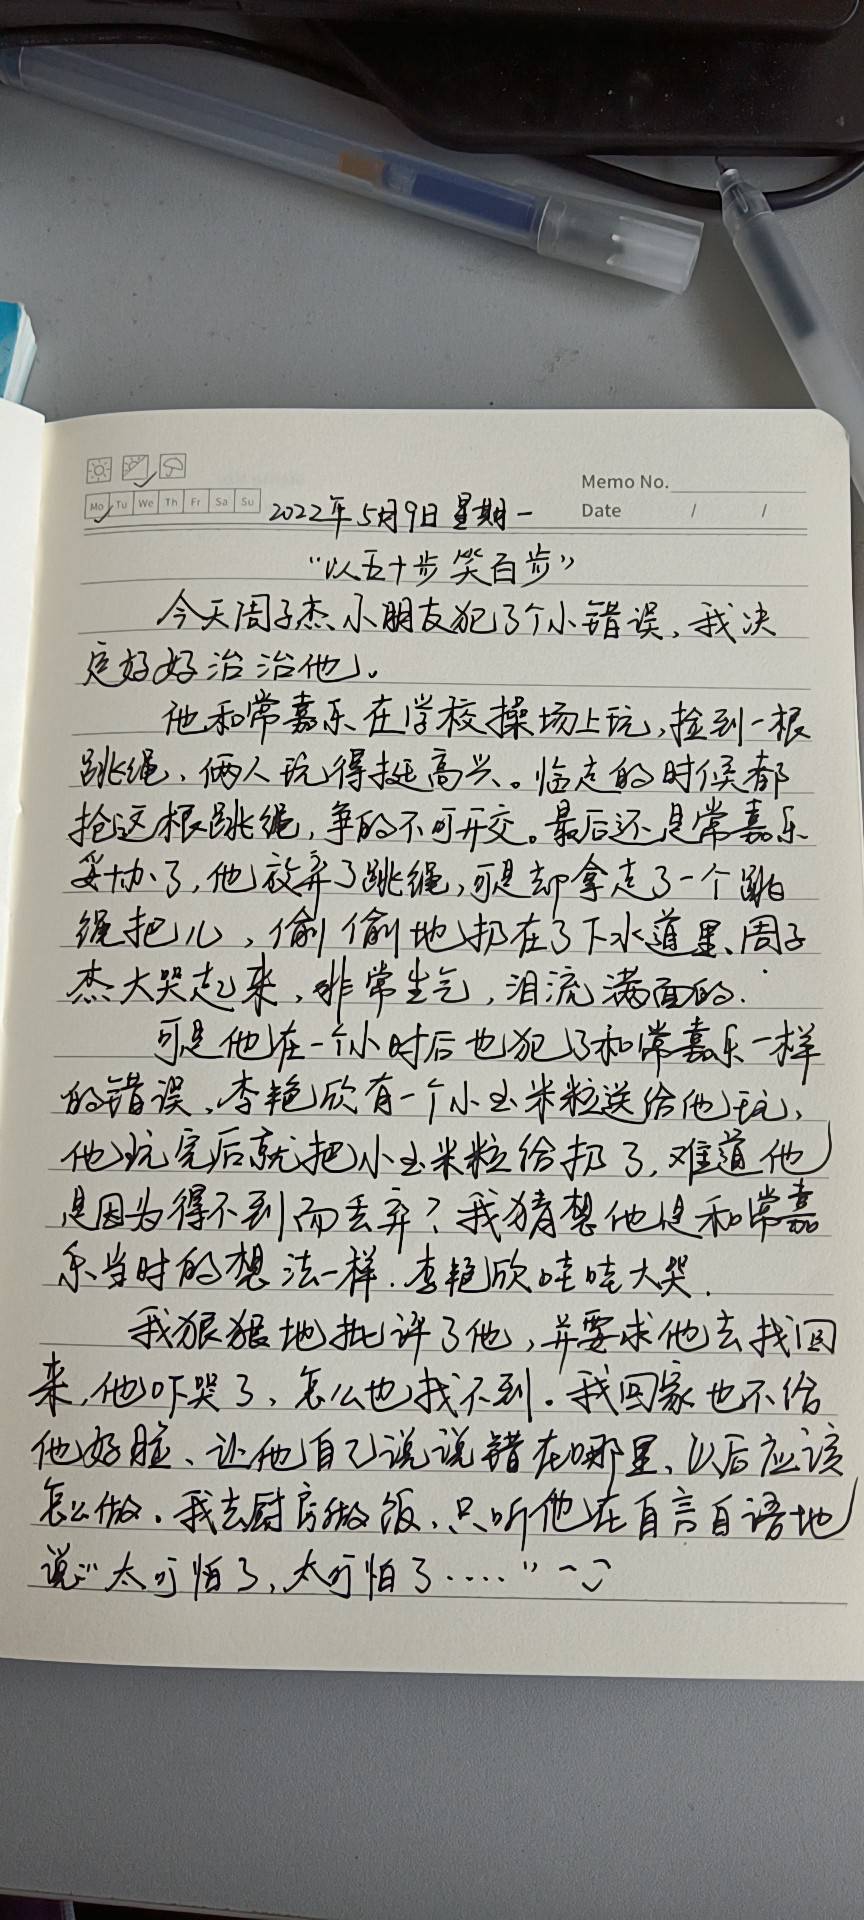 Memo No.
Mo Tu We Th Fr Sa Su
2022年5月9日 星期一
Date / /
“以五十步笑百步”
今天周子杰小朋友犯了个小错误，我决
定好好治治他。
他和常嘉乐在学校操场上玩，捡到一根
跳绳，俩人玩得挺高兴。临走的时候都
抢这根跳绳，争的不可开交。最后还是常嘉乐
妥协了，他放弃了跳绳，可是却拿走了一个跳
绳把儿，偷偷地扔在了下水道里、周子
杰大哭起来，非常生气，泪流满面的.
可是他在一个小时后也犯了和常嘉乐一样
的错误、李艳欣有一个小玉米粒送给他玩，
他玩完后就把小玉米粒给扔了，难道他
是因为得不到而丢弃？我猜想他是和常嘉
乐当时的想法一样.李艳欣哇哇大哭.
我狠狠地批评了他，并要求他去找回
来，他吓哭了、怎么也找不到。我回家也不给
他好脸、让他自己说说错在哪里、以后应该
怎么做。我去厨房做饭、只听他在自言自语地
说：“太可怕了，太可怕了……”